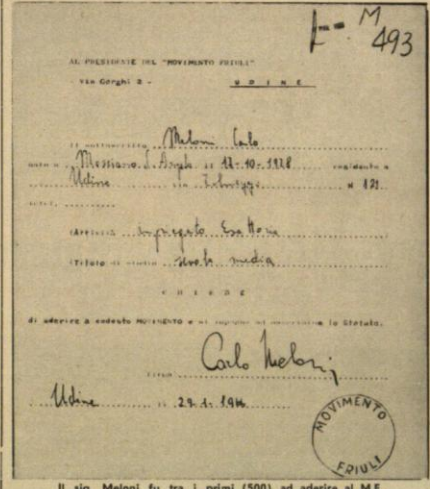 M
493
AL PRESIDENTE DEL "MOVIMENTO FRIULI"
- Via Gorghi 2 -
UDINE
Il sottoscritto Meloni Carlo
nato a Mossano S. il 12-10-1928 residente a
Udine via N 121
(Attività impiegato Esattoria
(Titolo di studio scuola media
CHIEDE
di aderire a codesto MOVIMENTO e si impegna ad osservarne lo Statuto.
Firma Carlo Meloni
Udine li 29-1-
MOVIMENTO FRIULI
Il sig. Meloni fu tra i primi (500) ad aderire al M.F.